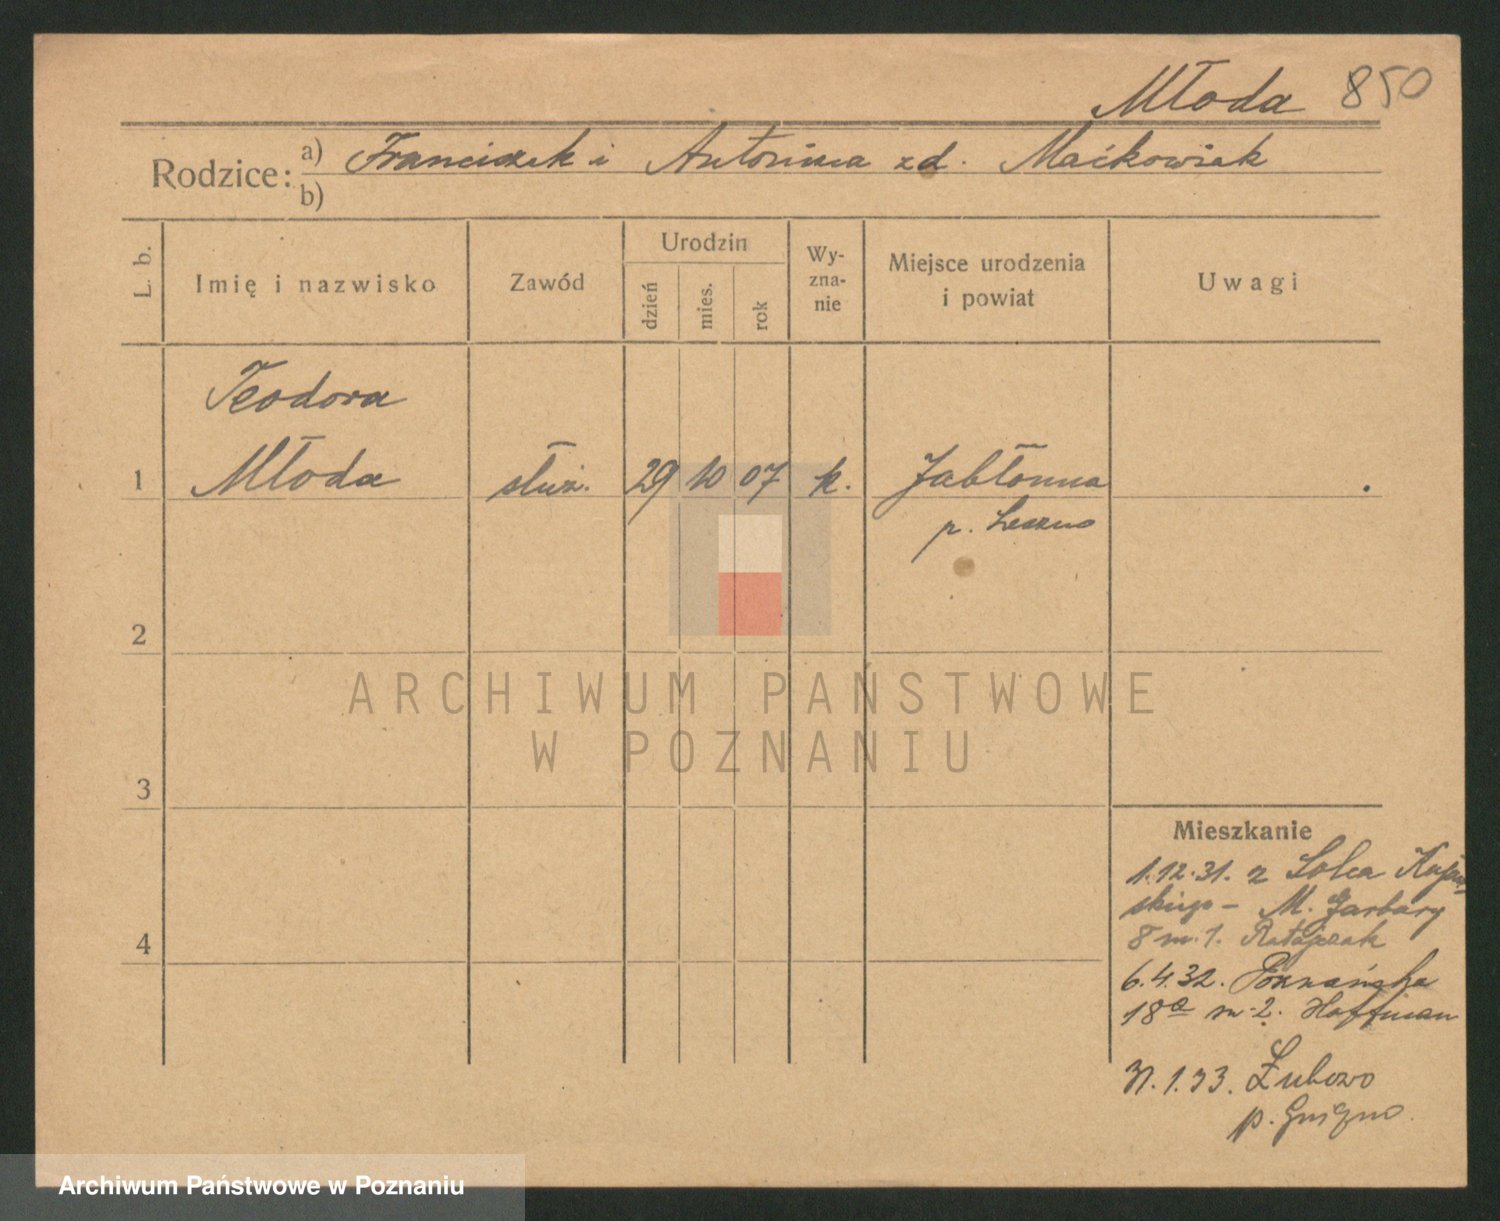 Młoda 850
Rodzice: a) Franciszek i Antonina zd. Maćkowiak
b)
L. b.
Imię i nazwisko
Zawód
Urodzin
dzień
mies.
rok
Wy-
zna-
nie
Miejsce urodzenia
i powiat
Uwagi
Teodora
1 Młoda służ. 29 10 07 k. Jabłonna
p. Leszno
2
3
4
Mieszkanie
1.12.31. z Solca Kujaw-
skiego – M. Garbary
8 m. 1. Ratajczak
6.4.32. Poznańska
18a m. 2. Hoffman
31.1.33. Łubowo
p. Gniezno.
ARCHIWUM PAŃSTWOWE
W POZNANIU
Archiwum Państwowe w Poznaniu